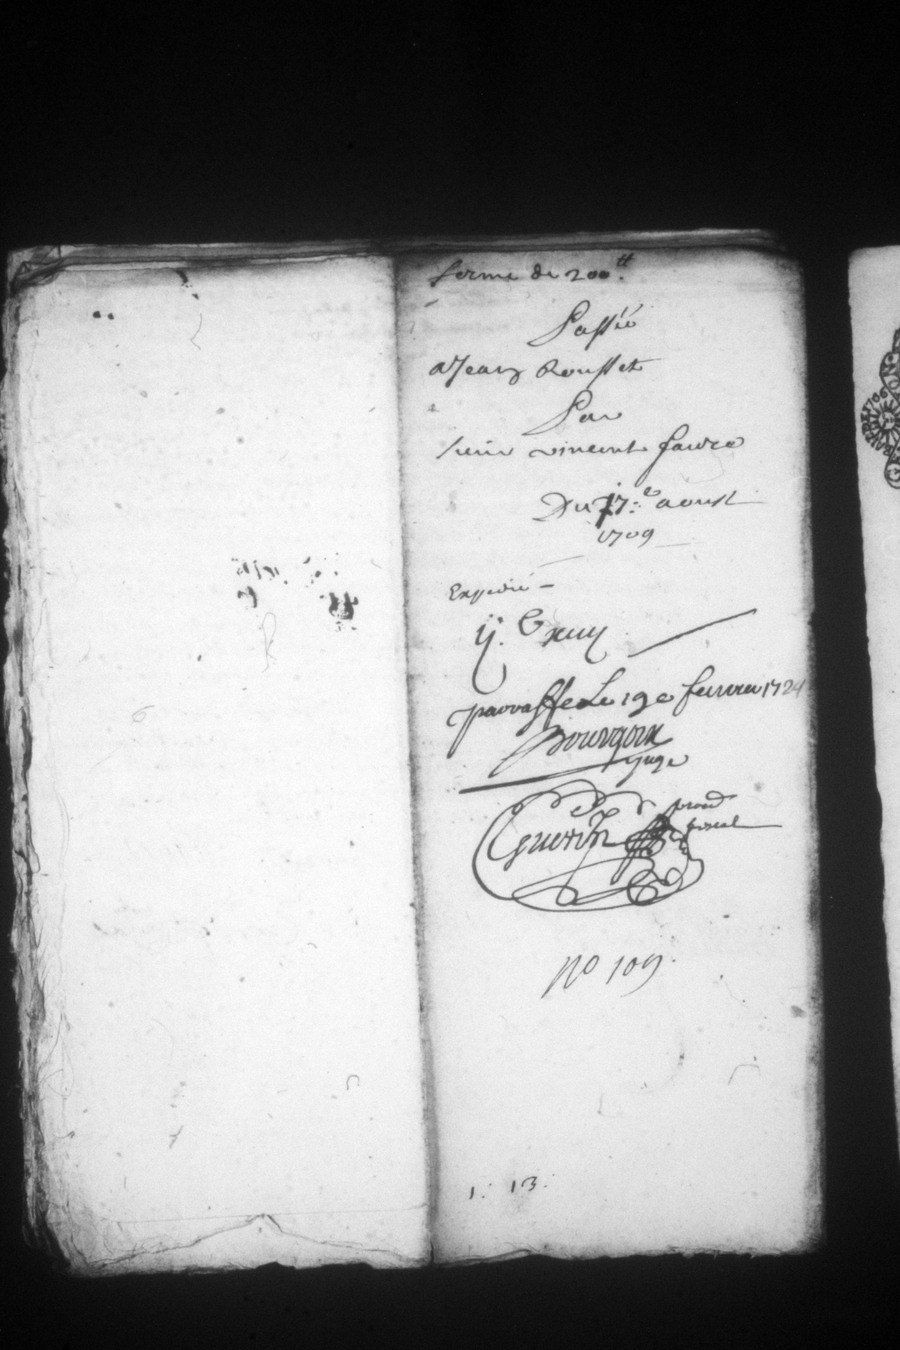 ferme de 200 tt.
Passée
a Jean Rousset
Par
sieur vincent faure
Du 17.e aoust
1709
Expedié -
ij.
paraffé Le 19e fevrier 1724
Bourgoin
juge
Guerin procu
fiscal
No 109.
1. 13.